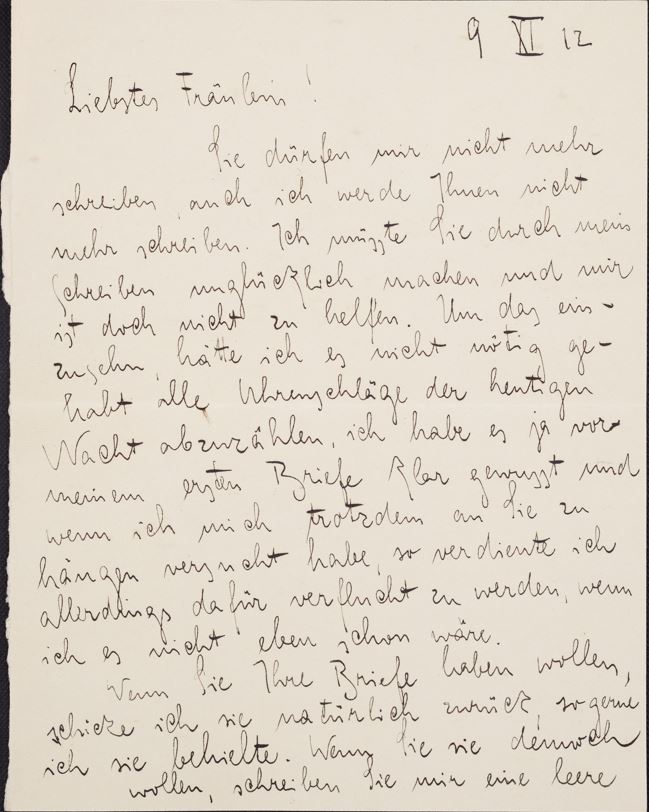 9 XI 12
Liebstes Fräulein!
Sie dürfen mir nicht mehr
schreiben, auch ich werde Ihnen nicht
mehr schreiben. Ich müsste Sie durch mein
Schreiben unglücklich machen und mir
ist doch nicht zu helfen. Um das ein-
zusehn, hätte ich es nicht nötig ge-
habt alle Uhrenschläge der heutigen
Nacht abzuzählen, ich habe es ja vor
meinem ersten Briefe klar gewusst und
wenn ich mich trotzdem an Sie zu
hängen versucht habe, so verdiente ich
allerdings dafür verflucht zu werden, wenn
ich es nicht eben schon wäre.
Wenn Sie Ihre Briefe haben wollen,
schicke ich sie natürlich zurück, so gerne
ich sie behielte. Wenn Sie sie dennoch
wollen, schreiben Sie mir eine leere